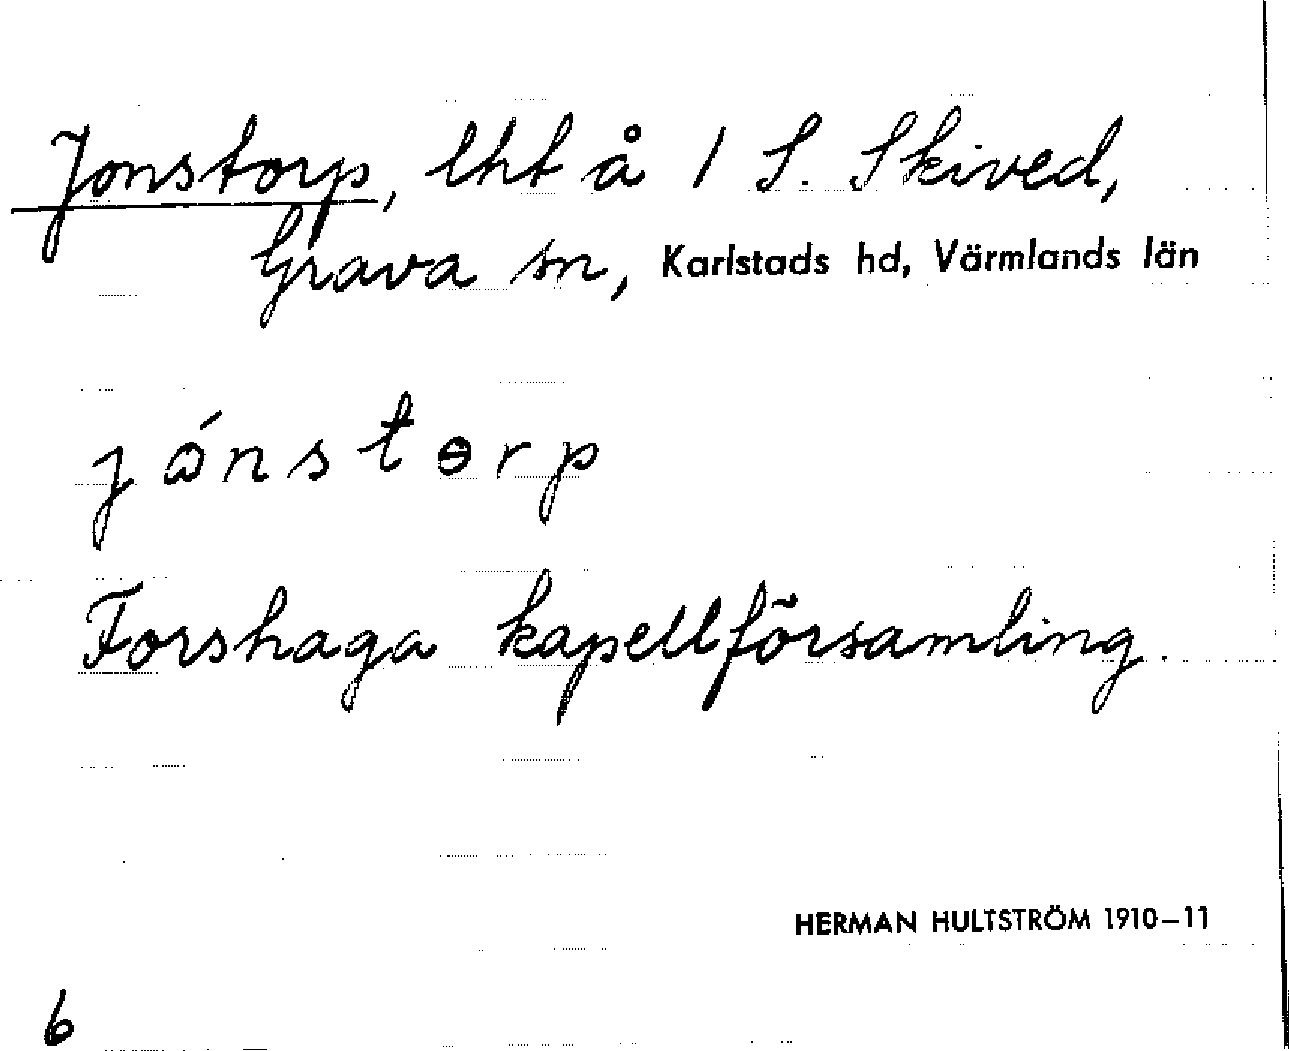 Jonstorp, lht å 1 S. Skived,
Grava sn, Karlstads hd, Värmlands län
jónstɵrp
Forshaga kapellförsamling.
HERMAN HULTSTRÖM 1910–11
6